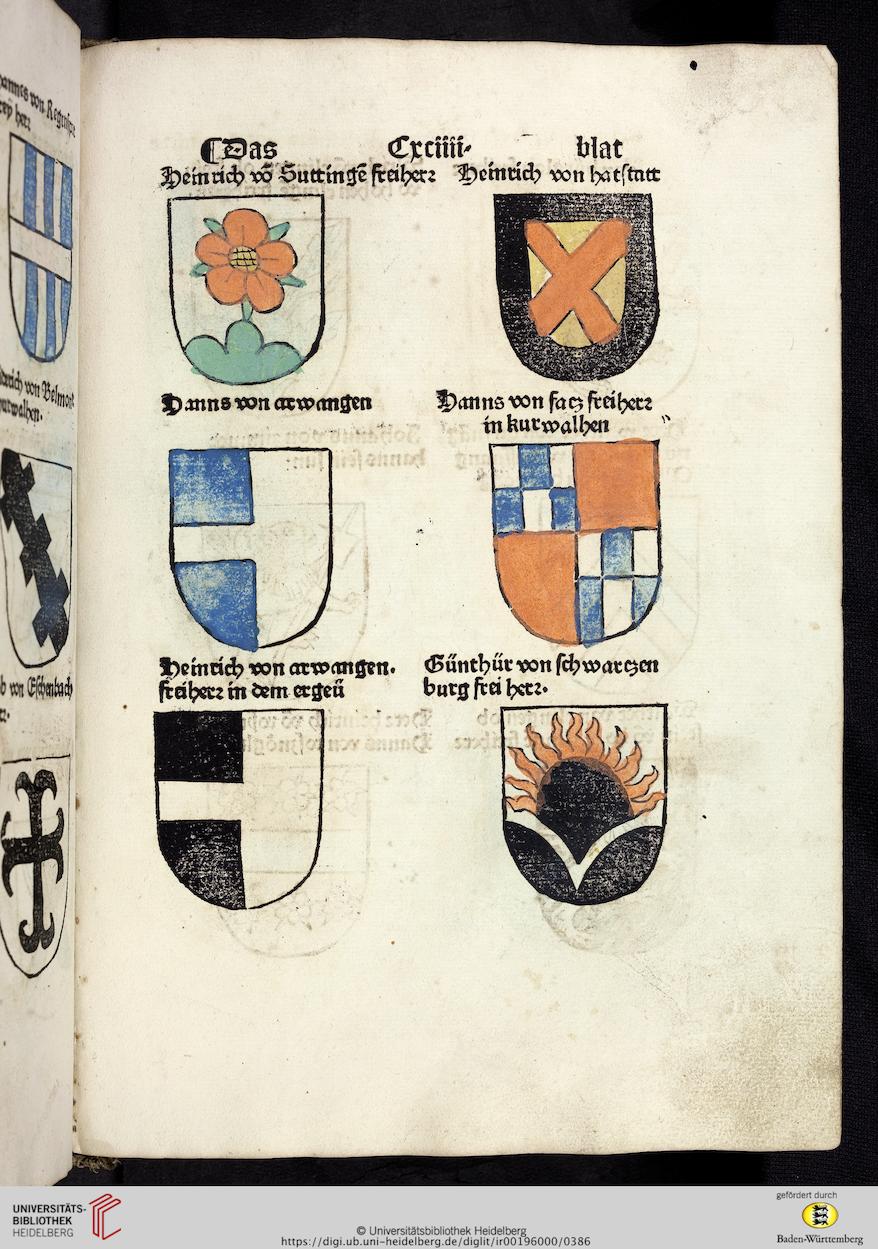 annes von Regensp
rey herr
dwich von Belmont
urwalhen.
b von Eschenbach
¶Das Cxciiii. blat
Heinrich vō Guttingē freiherr Heinrich von hatstatt
Hanns von arwangen Hanns von facz freiherr
in kurwalhen
Heinrich von arwangen. Günthür von schwarczen
freiherr in dem ergeü burg frei herr.
UNIVERSITÄTS-
BIBLIOTHEK
HEIDELBERG
© Universitätsbibliothek Heidelberg
https://digi.ub.uni-heidelberg.de/diglit/ir00196000/0386
gefördert durch
Baden-Württemberg